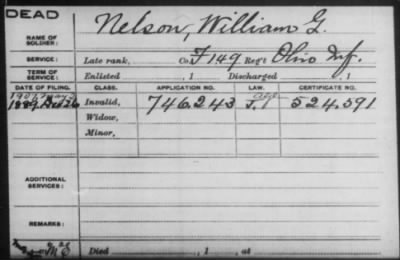 DEAD
NAME OF SOLDIER: Nelson, William G.
SERVICE: Late rank, Co. F 149 Reg't Ohio Inf.
TERM OF SERVICE: Enlisted , 1 Discharged , 1
DATE OF FILING. CLASS. APPLICATION NO. LAW. CERTIFICATE NO.
1907
1889 Invalid, 746.243 524.591
Widow,
Minor,
ADDITIONAL SERVICES:
REMARKS:
Died , 1 , at